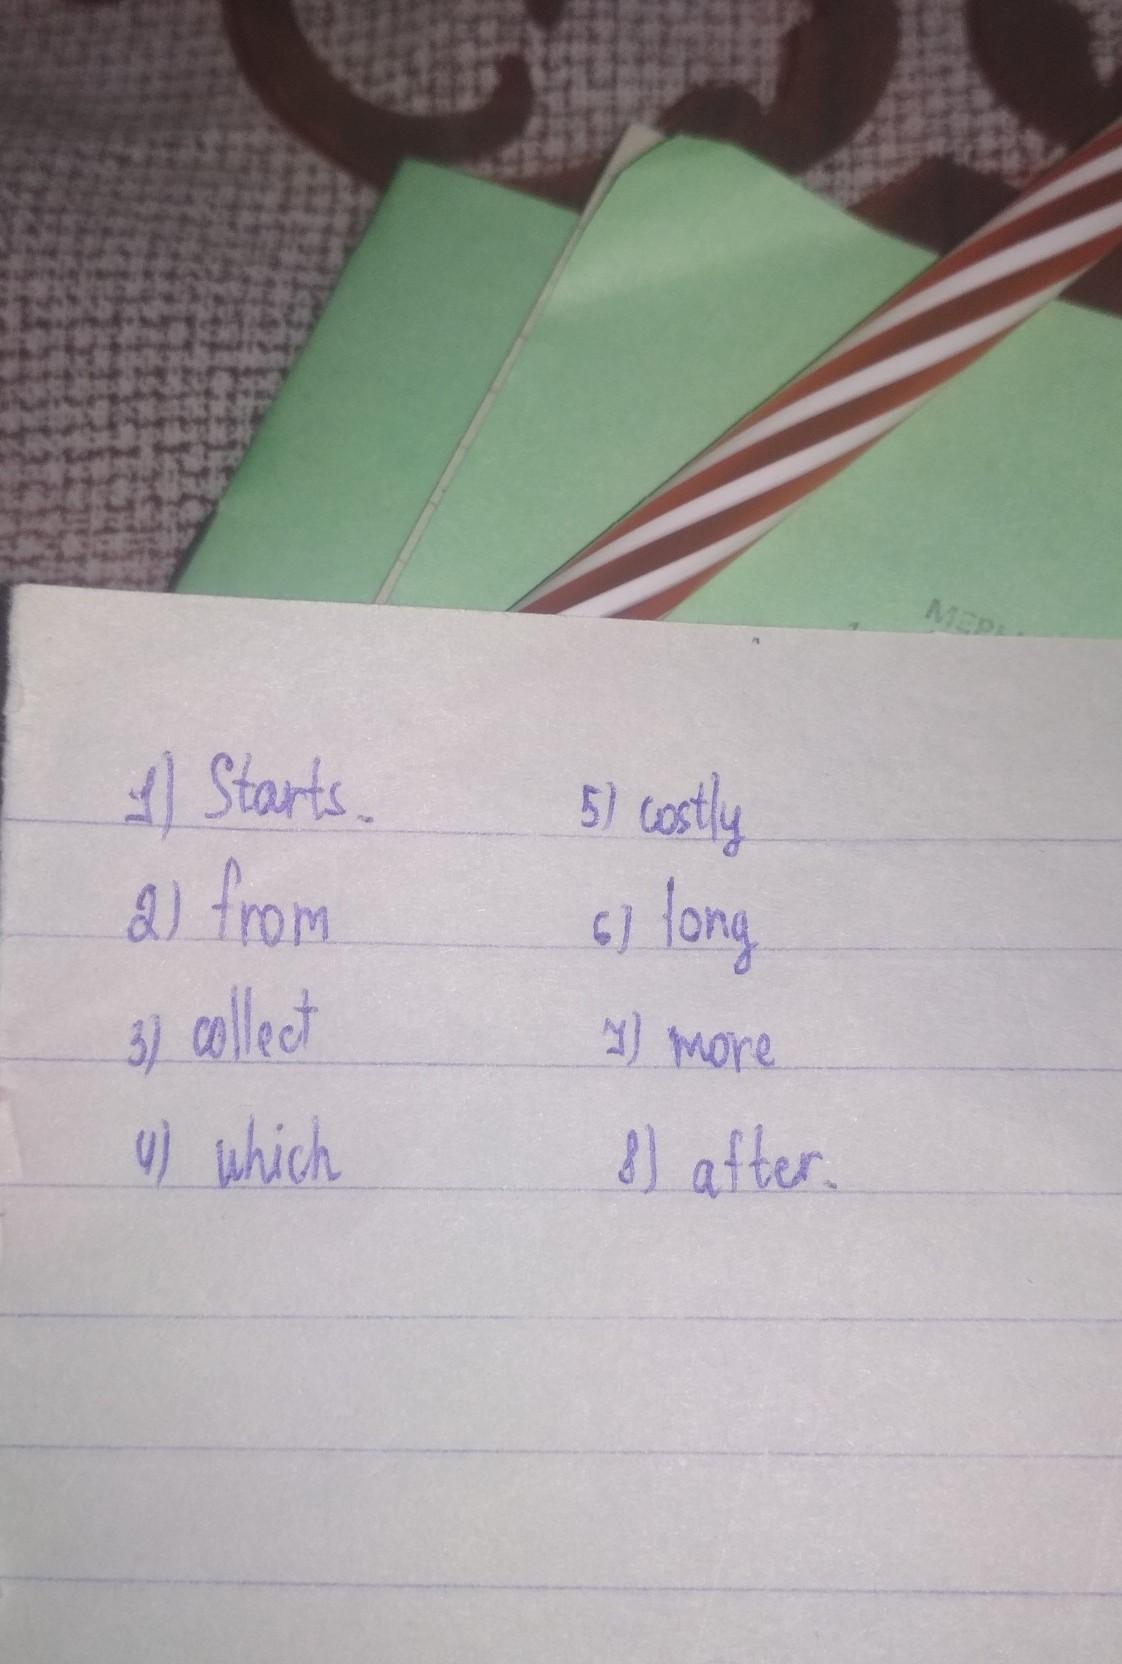 1) Starts.
2) from
3) collect
4) which
5) costly
6) long
7) more
8) after.